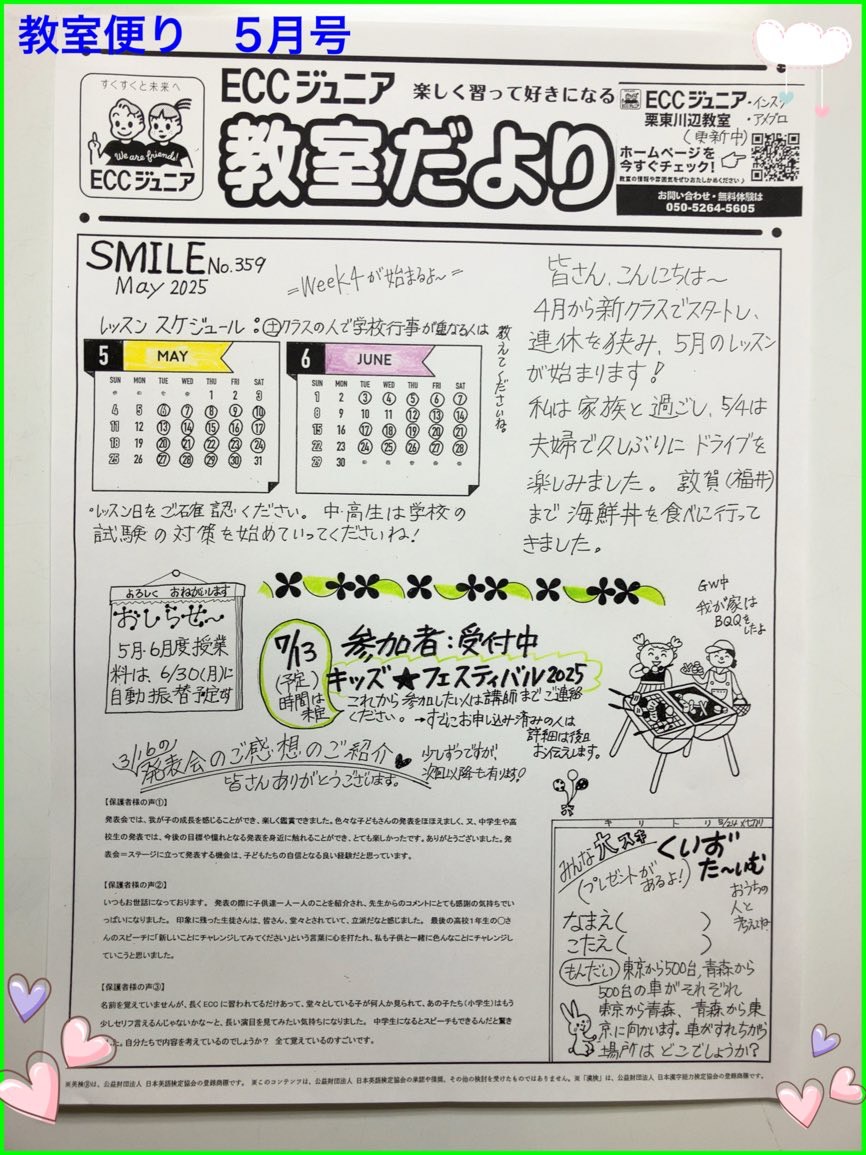 教室便り 5月号
すくすくと未来へ
We are friends!
ECCジュニア
ECCジュニア 楽しく習って好きになる
教室だより
ECCジュニア
栗東川辺教室
・インスタ
・アメブロ
(更新中)
ホームページを
今すぐチェック!
教室の情報や雰囲気をぜひおたしかめください♪
お問い合わせ・無料体験は
050-5264-5605
SMILE No.359
May 2025
=Week4が始まるよ~=
レッスン スケジュール:㊏クラスの人で学校行事が重なる人は
教えてくださいね。
5 MAY
SUN MON TUE WED THU FRI SAT
1 2 3
4 5 6 7 8 9 10
11 12 13 14 15 16 17
18 19 20 21 22 23 24
25 26 27 28 29 30 31
6 JUNE
SUN MON TUE WED THU FRI SAT
1 2 3 4 5 6 7
8 9 10 11 12 13 14
15 16 17 18 19 20 21
22 23 24 25 26 27 28
29 30
・レッスン日をご確認ください。 中・高生は学校の
試験の対策を始めていってくださいね!
皆さん、こんにちは~
4月から新クラスでスタートし、
連休を挟み、5月のレッスン
が始まります!
私は家族と過ごし、5/4は
夫婦で久しぶりにドライブを
楽しみました。 敦賀(福井)
まで海鮮丼を食べに行って
きました。
よろしく おねがいします
おしらせ~
5月・6月度授業
料は、6/30(月)に
自動振替予定です
7/13
(予定)
時間は
未定
参加者:受付中
キッズ★フェスティバル2025
これから参加したい人は講師までご連絡
ください。 →すでにお申し込み済みの人は
詳細は後日
お伝えします。
GW中
我が家は
BQQを
したよ
3/16の
発表会のご感想のご紹介
皆さんありがとうございます。
少しずつですが、
次回以降も有ります!
【保護者様の声①】
発表会では、我が子の成長を感じることができ、楽しく鑑賞できました。色々な子どもさんの発表をほほえましく、又、中学生や高
校生の発表では、今後の目標や憧れとなる発表を身近に触れることができ、とても楽しかったです。ありがとうございました。発
表会=ステージに立って発表する機会は、子どもたちの自信となる良い経験だと思っています。
【保護者様の声②】
いつもお世話になっております。 発表の際に子供達一人一人のことを紹介され、先生からのコメントにとても感謝の気持ちでい
っぱいになりました。 印象に残った生徒さんは、皆さん、堂々とされていて、立派だなと感じました。 最後の高校1年生の○さ
んのスピーチに「新しいことにチャレンジしてみてください」という言葉に心を打たれ、私も子供と一緒に色んなことにチャレンジし
ていこうと思いました。
【保護者様の声③】
名前を覚えていませんが、長くECCに習われてるだけあって、堂々としている子が何人か見られて、あの子たち(小学生)はもう
少しセリフ言えるんじゃないかな~と、長い演目を見てみたい気持ちになりました。 中学生になるとスピーチもできるんだと驚き
した。自分たちで内容を考えているのでしょうか? 全て覚えているのすごいです。
キリトリ 5/24 〆切り
みんな大スキ くいず
た~いむ
(プレゼントが
あるよ!)
おうちの
人と
考えよね
なまえ( )
こたえ( )
もんだい 東京から500台、青森から
500台の車がそれぞれ
東京から青森、青森から東
京に向かいます。車がすれちがう
場所は どこでしょうか?
※英検Ⓡは、公益財団法人 日本英語検定協会の登録商標です。 ※このコンテンツは、公益財団法人 日本英語検定協会の承認や推奨、その他の検討を受けたものではありません。※「漢検」は、公益財団法人 日本漢字能力検定協会の登録商標です。